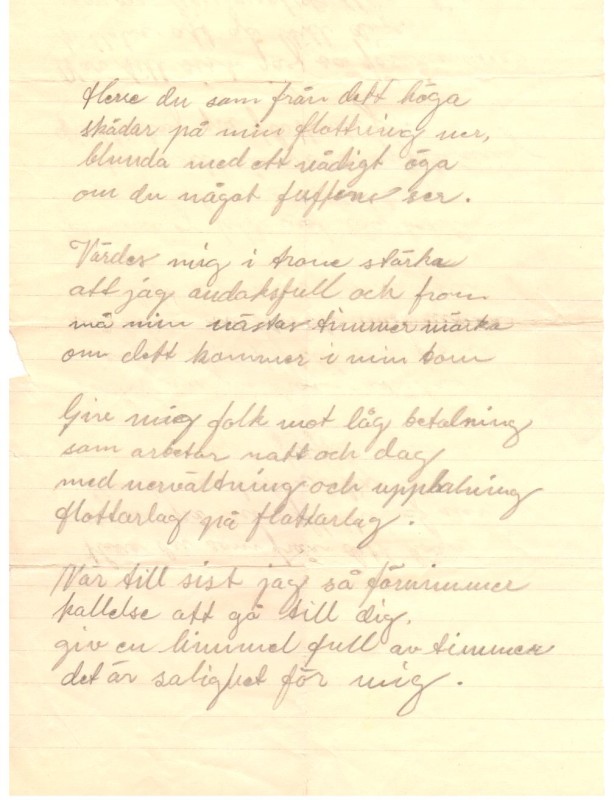 Herre du som från dett höga
skådar på min flottning ner,
blunda med ett nådigt öga
om du något fuffens ser.
Värdes mig i trone stärka
att jag andaksfull och from
må min nästas timmer märka
om dett kommer i min bom
Give mig folk mot låg betalning
som arbetar natt och dag
med nervältning och uppbalning
flottarlag på flottarlag.
När till sist jag så förnimmer
kallelse att gå till dig.
giv en himmel full av timmer
det är salighet för mig.